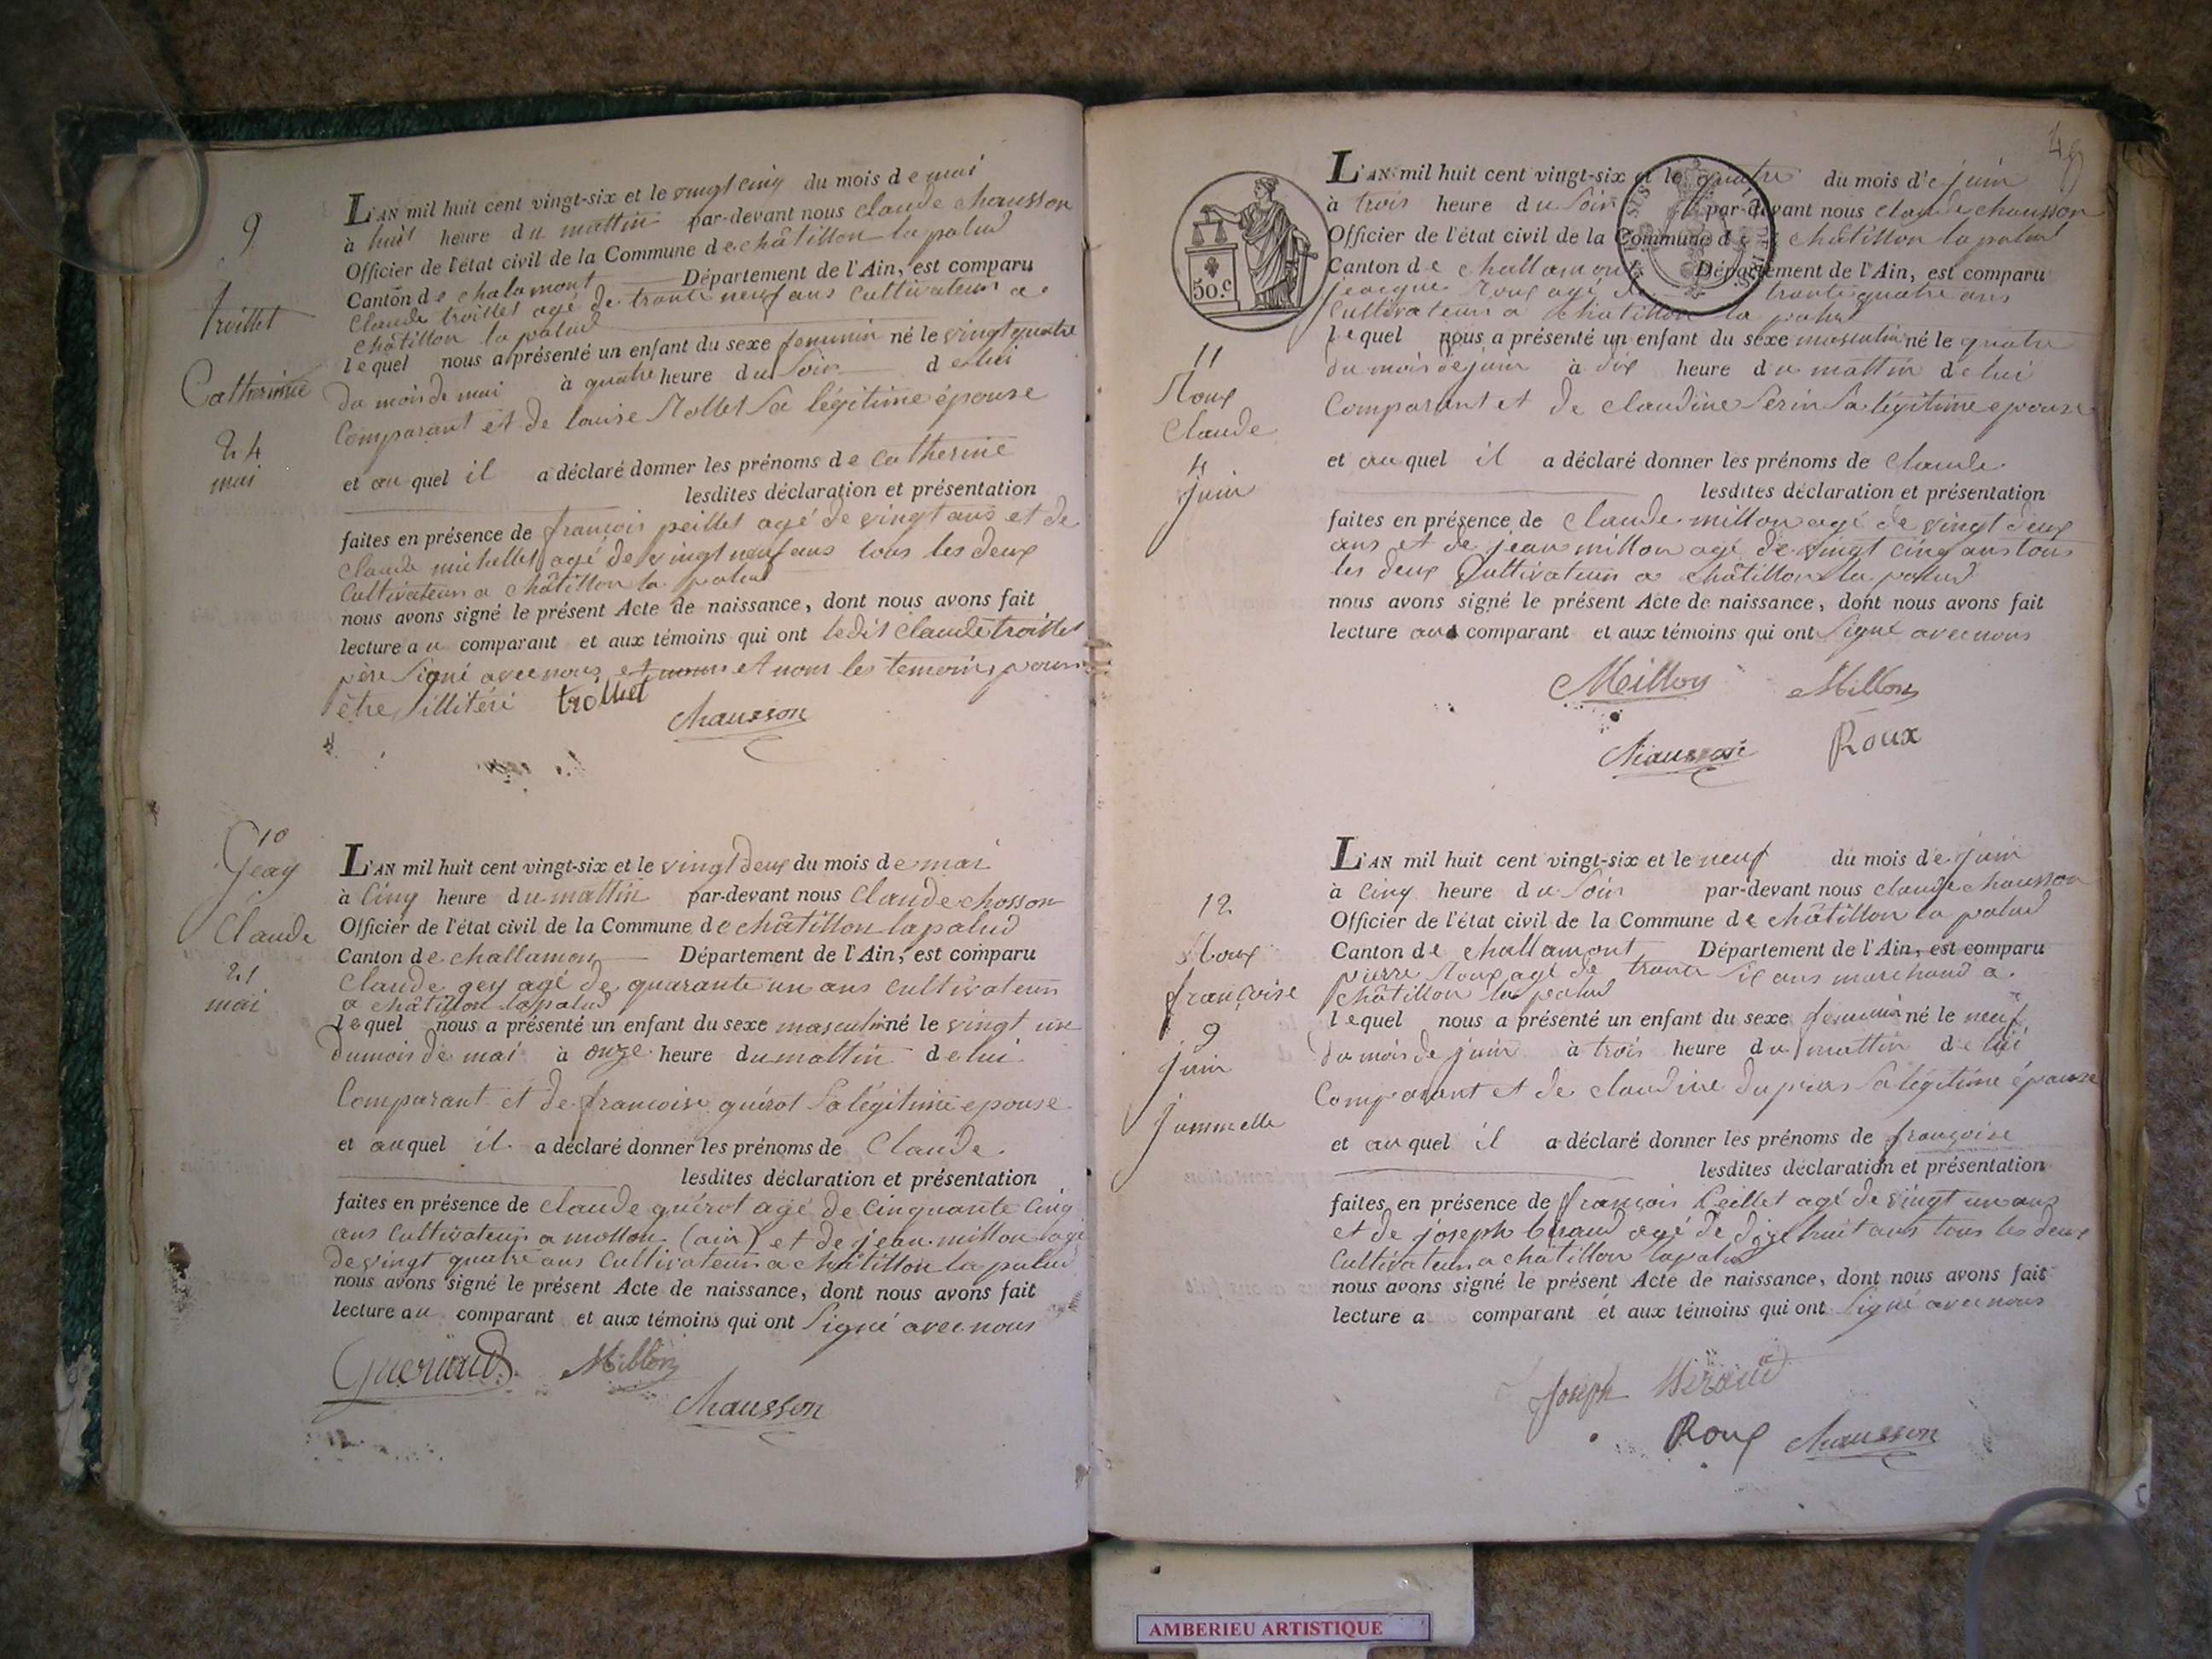 9
troillet
Catherinne
24
mai
L'AN mil huit cent vingt-six et le vingt cinq du mois de mai
à huit heure du mattin par-devant nous claude chausson
Officier de l'état civil de la Commune de châtillon la palud
Canton de chalamont Département de l'Ain, est comparu
Claude troillet agé de trante neuf ans Cultivateur a
châtillon la palud
lequel nous a présenté un enfant du sexe feminin né le vingt quatre
du mois de mai à quatre heure du Soir de lui
Comparant et de louise Rollet Sa légitime épouse
et au quel il a déclaré donner les prénoms de catherine
lesdites déclaration et présentation
faites en présence de françois peillet agé de vingt ans et de
claude michellet agé de vingt neuf ans tous les deux
Cultivateurs a châtillon la palud
nous avons signé le présent Acte de naissance, dont nous avons fait
lecture au comparant et aux témoins qui ont ledit claude troillet
père Signé avec nous et nom et nom les temoins pour
être illitéré trolliet
chausson
10
Geay
Claude
21
mai
L'AN mil huit cent vingt-six et le vingt deux du mois de mai
à Cinq heure du mattin par-devant nous Claude chosson
Officier de l'état civil de la Commune de châtillon la palud
Canton de challamon Département de l'Ain, est comparu
Claude gey agé de quarante un ans cultivateur
a châtillon la palud
lequel nous a présenté un enfant du sexe masculin né le vingt un
du mois de mai à onze heure du mattin de lui
Comparant et de francoise guérot Sa légitime epouse
et auquel il a déclaré donner les prénoms de Claude
lesdites déclaration et présentation
faites en présence de claude guérot agé de Cinquante Cinq
ans Cultivateur a mollon (ain) et de jean millon agé
de vingt quatre ans Cultivateur a châtillon la palud
nous avons signé le présent Acte de naissance, dont nous avons fait
lecture au comparant et aux témoins qui ont Signé avec nous
Millon
chausson
49
50.c
11
Roux
Claude
4
juin
L'AN mil huit cent vingt-six et le quatre du mois de juin
à trois heure du Soir par-devant nous claude chausson
Officier de l'état civil de la Commune de châtillon la palud
Canton de challamont Département de l'Ain, est comparu
jeacque Roux agé de trante quatre ans
Cultivateur a châtillon la palud
lequel nous a présenté un enfant du sexe masculin né le quatre
du mois de juin à dix heure du mattin de lui
Comparant et de claudine Perin Sa légitime epouse
et au quel il a déclaré donner les prénoms de Claude
lesdites déclaration et présentation
faites en présence de Claude millon agé de vingt deux
ans et de jean millon agé de vingt cinq ans tous
les deux Cultivateur a châtillon la palud
nous avons signé le présent Acte de naissance, dont nous avons fait
lecture au comparant et aux témoins qui ont Signé avec nous
Millon Millon
chausson Roux
12
Roux
françoise
9
juin
jummelle
L'AN mil huit cent vingt-six et le neuf du mois de juin
à Cinq heure du Soir par-devant nous claude chausson
Officier de l'état civil de la Commune de châtillon la palud
Canton de challamont Département de l'Ain, est comparu
pierre Roux agé de trante Six ans marchand a
châtillon la palud
lequel nous a présenté un enfant du sexe feminin né le neuf
du mois de juin à trois heure du mattin de lui
Comparant et de claudine Sa légitime épouse
et au quel il a déclaré donner les prénoms de françoise
lesdites déclaration et présentation
faites en présence de françois Peillet agé de vingt un ans
et de joseph beraud agé de dixhuit ans tous les deux
Cultivateur a châtillon la palud
nous avons signé le présent Acte de naissance, dont nous avons fait
lecture a comparant et aux témoins qui ont Signé avec nous
Joseph Béraud
Roux chausson
AMBERIEU ARTISTIQUE